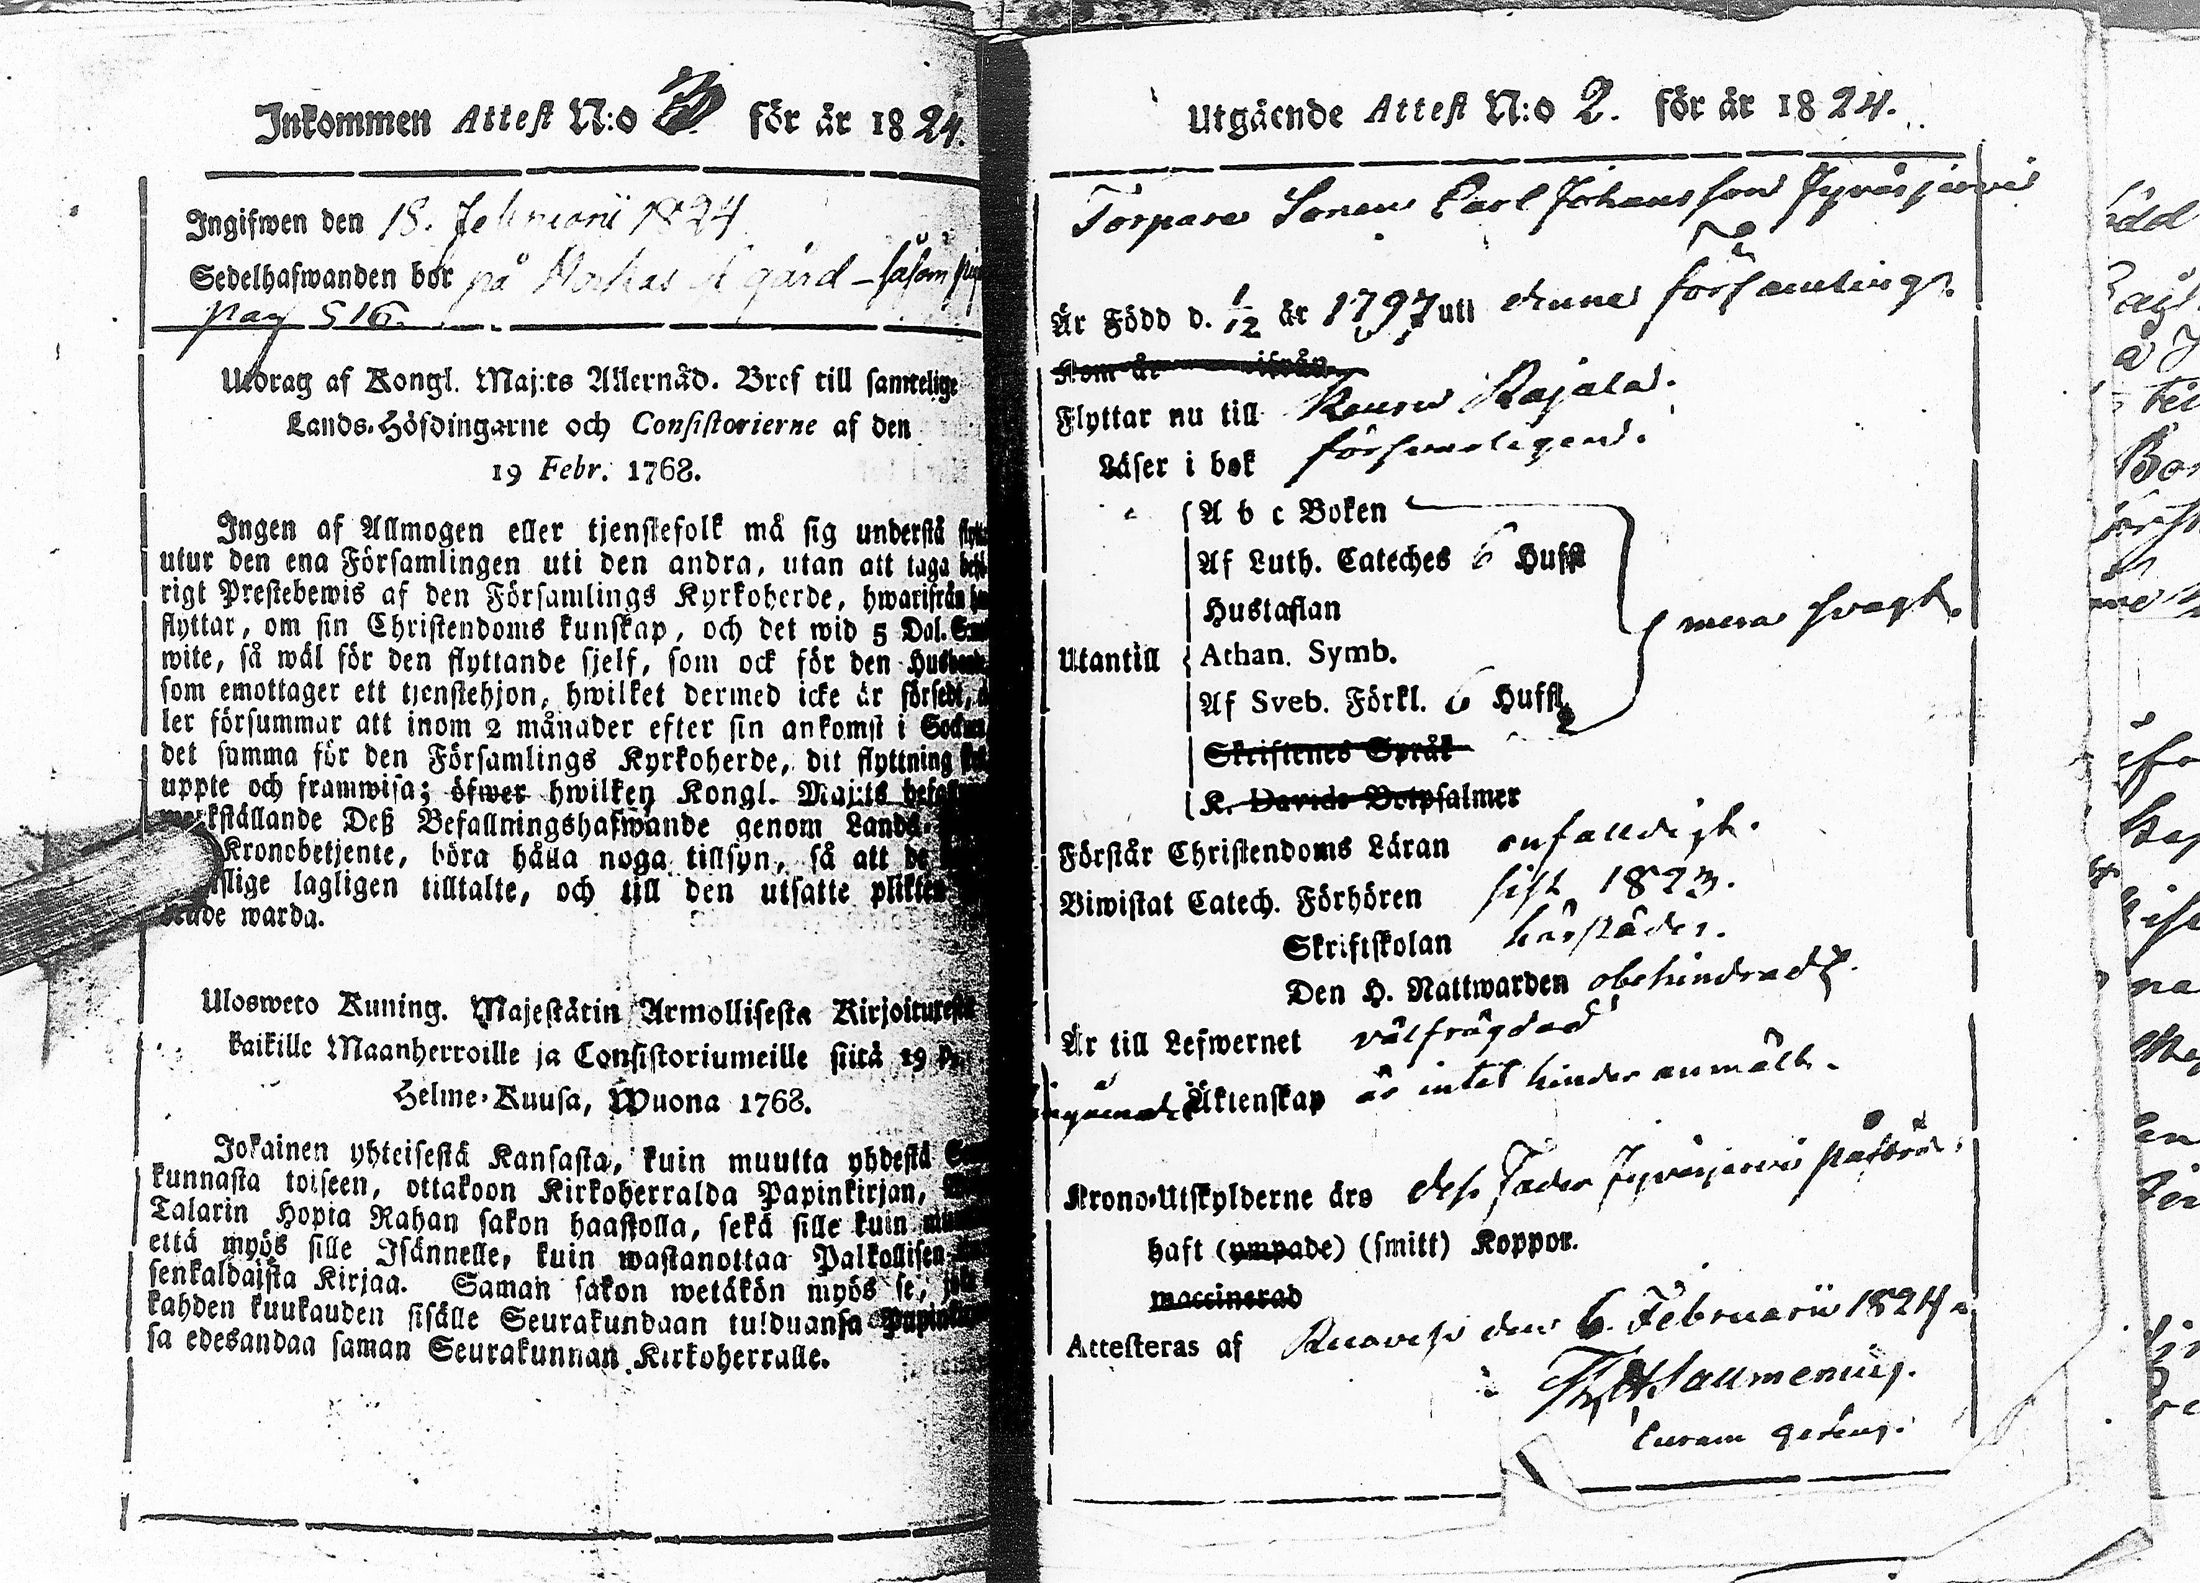 Inkommen Attest N:o för år 1824.
Ingifwen den 18. Februarii 1824
Sedelhafwanden bor på gård – såsom
pag 516.
Utdrag af Kongl. Maj:ts Allernåd. Bref till samtelige
Lands-Höfdingarne och Consistorierne af den
19 Febr. 1768.
Ingen af Allmogen eller tjenstefolk må sig understå
utur den ena Församlingen uti den andra, utan att taga
rigt Prestebewis af den Församlings Kyrkoherde, hwarifrån
flyttar, om sin Christendoms kunskap, och det wid 5 Dal.
wite, så wäl för den flyttande sjelf, som ock för den
som emottager ett tjenstehjon, hwilket dermed icke är försedt,
ler försummar att inom 2 månader efter sin ankomst i
det samma för den Församlings Kyrkoherde, dit flyttning
uppte och framwisa; öfwer hwilken Kongl. Maj:ts
werkställande Deß Befallningshafwande genom Lands-
Kronobetjente, böra hålla noga tillsyn, så att de
lige lagligen tilltalte, och till den utsatte plikten
warda.
Ulosweto Kuning. Majestätin Armollisesta Kirjoituresta
kaikille Maanherroille ja Consistoriumeille siitä 19 p.
Helme-Kuusa, Wuona 1768.
Jokainen yhteisestä Kansasta, kuin muutta yhdestä
kunnasta toiseen, ottakoon Kirkoherralda Papinkirjan,
Talarin Hopia Rahan sakon haastolla, sekä sille kuin
että myös sille Isännelle, kuin wastanottaa Palkollisen
senkaldaista Kirjaa. Saman sakon wetäkön myös se,
kahden kuukauden sisälle Seurakundaan tulduansa
sa edesandaa saman Seurakunnan Kirkoherralle.
Utgående Attest N:o 2. för år 1824.
Torpare Sonen Carl Johansson Jyväsjärvi
Är Född d. 1/2 år 1797 uti denna församling.
Kom år ifrån
Flyttar nu till Keuru Rajala.
Läser i bok försvarligen.
A b c Boken
Af Luth. Cateches 6 Huffst
Hustaflan
Utantill Athan. Symb. mera svagt.
Af Sveb. Förkl. 6 Huffst
Skriftenes Språk
K. Davids Botpsalmer
Förstår Christendoms Läran enfalldigt.
Biwistat Catech. Förhören sist 1823.
Skriftskolan härstädes.
Den H. Nattwarden obehindradt.
Är till Lefwernet välfrägdad
Äktenskap är intet hinder anmält.
Krono-Utskylderne ärs dess Fader Jyväsjärvi
haft (ympade) (smitt) Koppor.
waccinerad
Attesteras af Ruovesi den 6. Februarii 1824
Sallmenius.
Curam gerens.